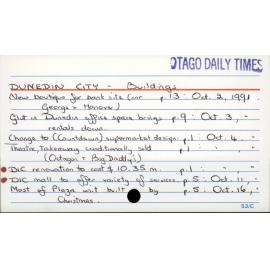 OTAGO DAILY TIMES
DUNEDIN CITY - Buildings
New boutique for bank site (cnr p.13: Oct. 2, 1991
George & Hanover)
Glut in Dunedin office space brings p.9: Oct. 3, "
rentals down.
Change to (Countdown) supermarket design p.1: Oct. 4, "
Theatre, Takeaway conditionally sold p.1: " "
(Octagon & Big Daddy's)
DIC renovation to cost $10.35 m. p.1: " "
DIC mall to offer variety of services p.5: Oct. 11, "
Most of Plaza built by p.5: Oct. 16, "
Christmas.
53/C